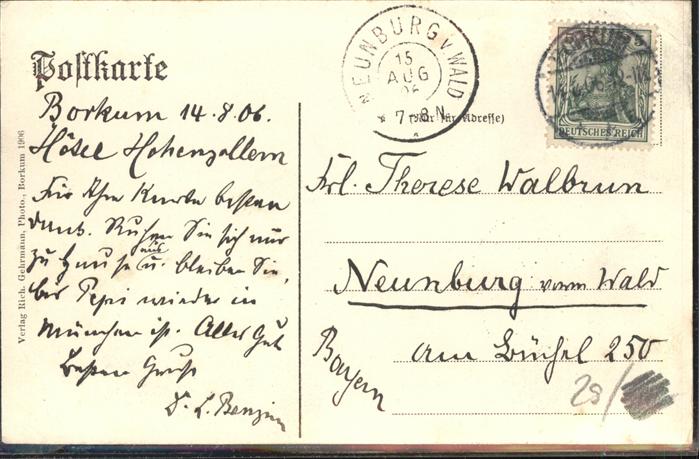 Postkarte
Borkum 14.8.06.
Hôtel Hohenzollern
Für Ihre Karte besten
Dank. Ruhen Sie sich nur
zu Hause aus u. bleiben Sie,
bis Pepi wieder in
München ist. Alles Gute
Besten Gruß
Verlag Rich. Gehrmann, Photo., Borkum 1906
NEUNBURG v WALD
15
AUG
06
7-8 N
(Nur für Adresse)
BORKUM
DEUTSCHES REICH
Frl. Therese Walbrun
Neunburg vorm Wald
am Büchel 250
Bayern